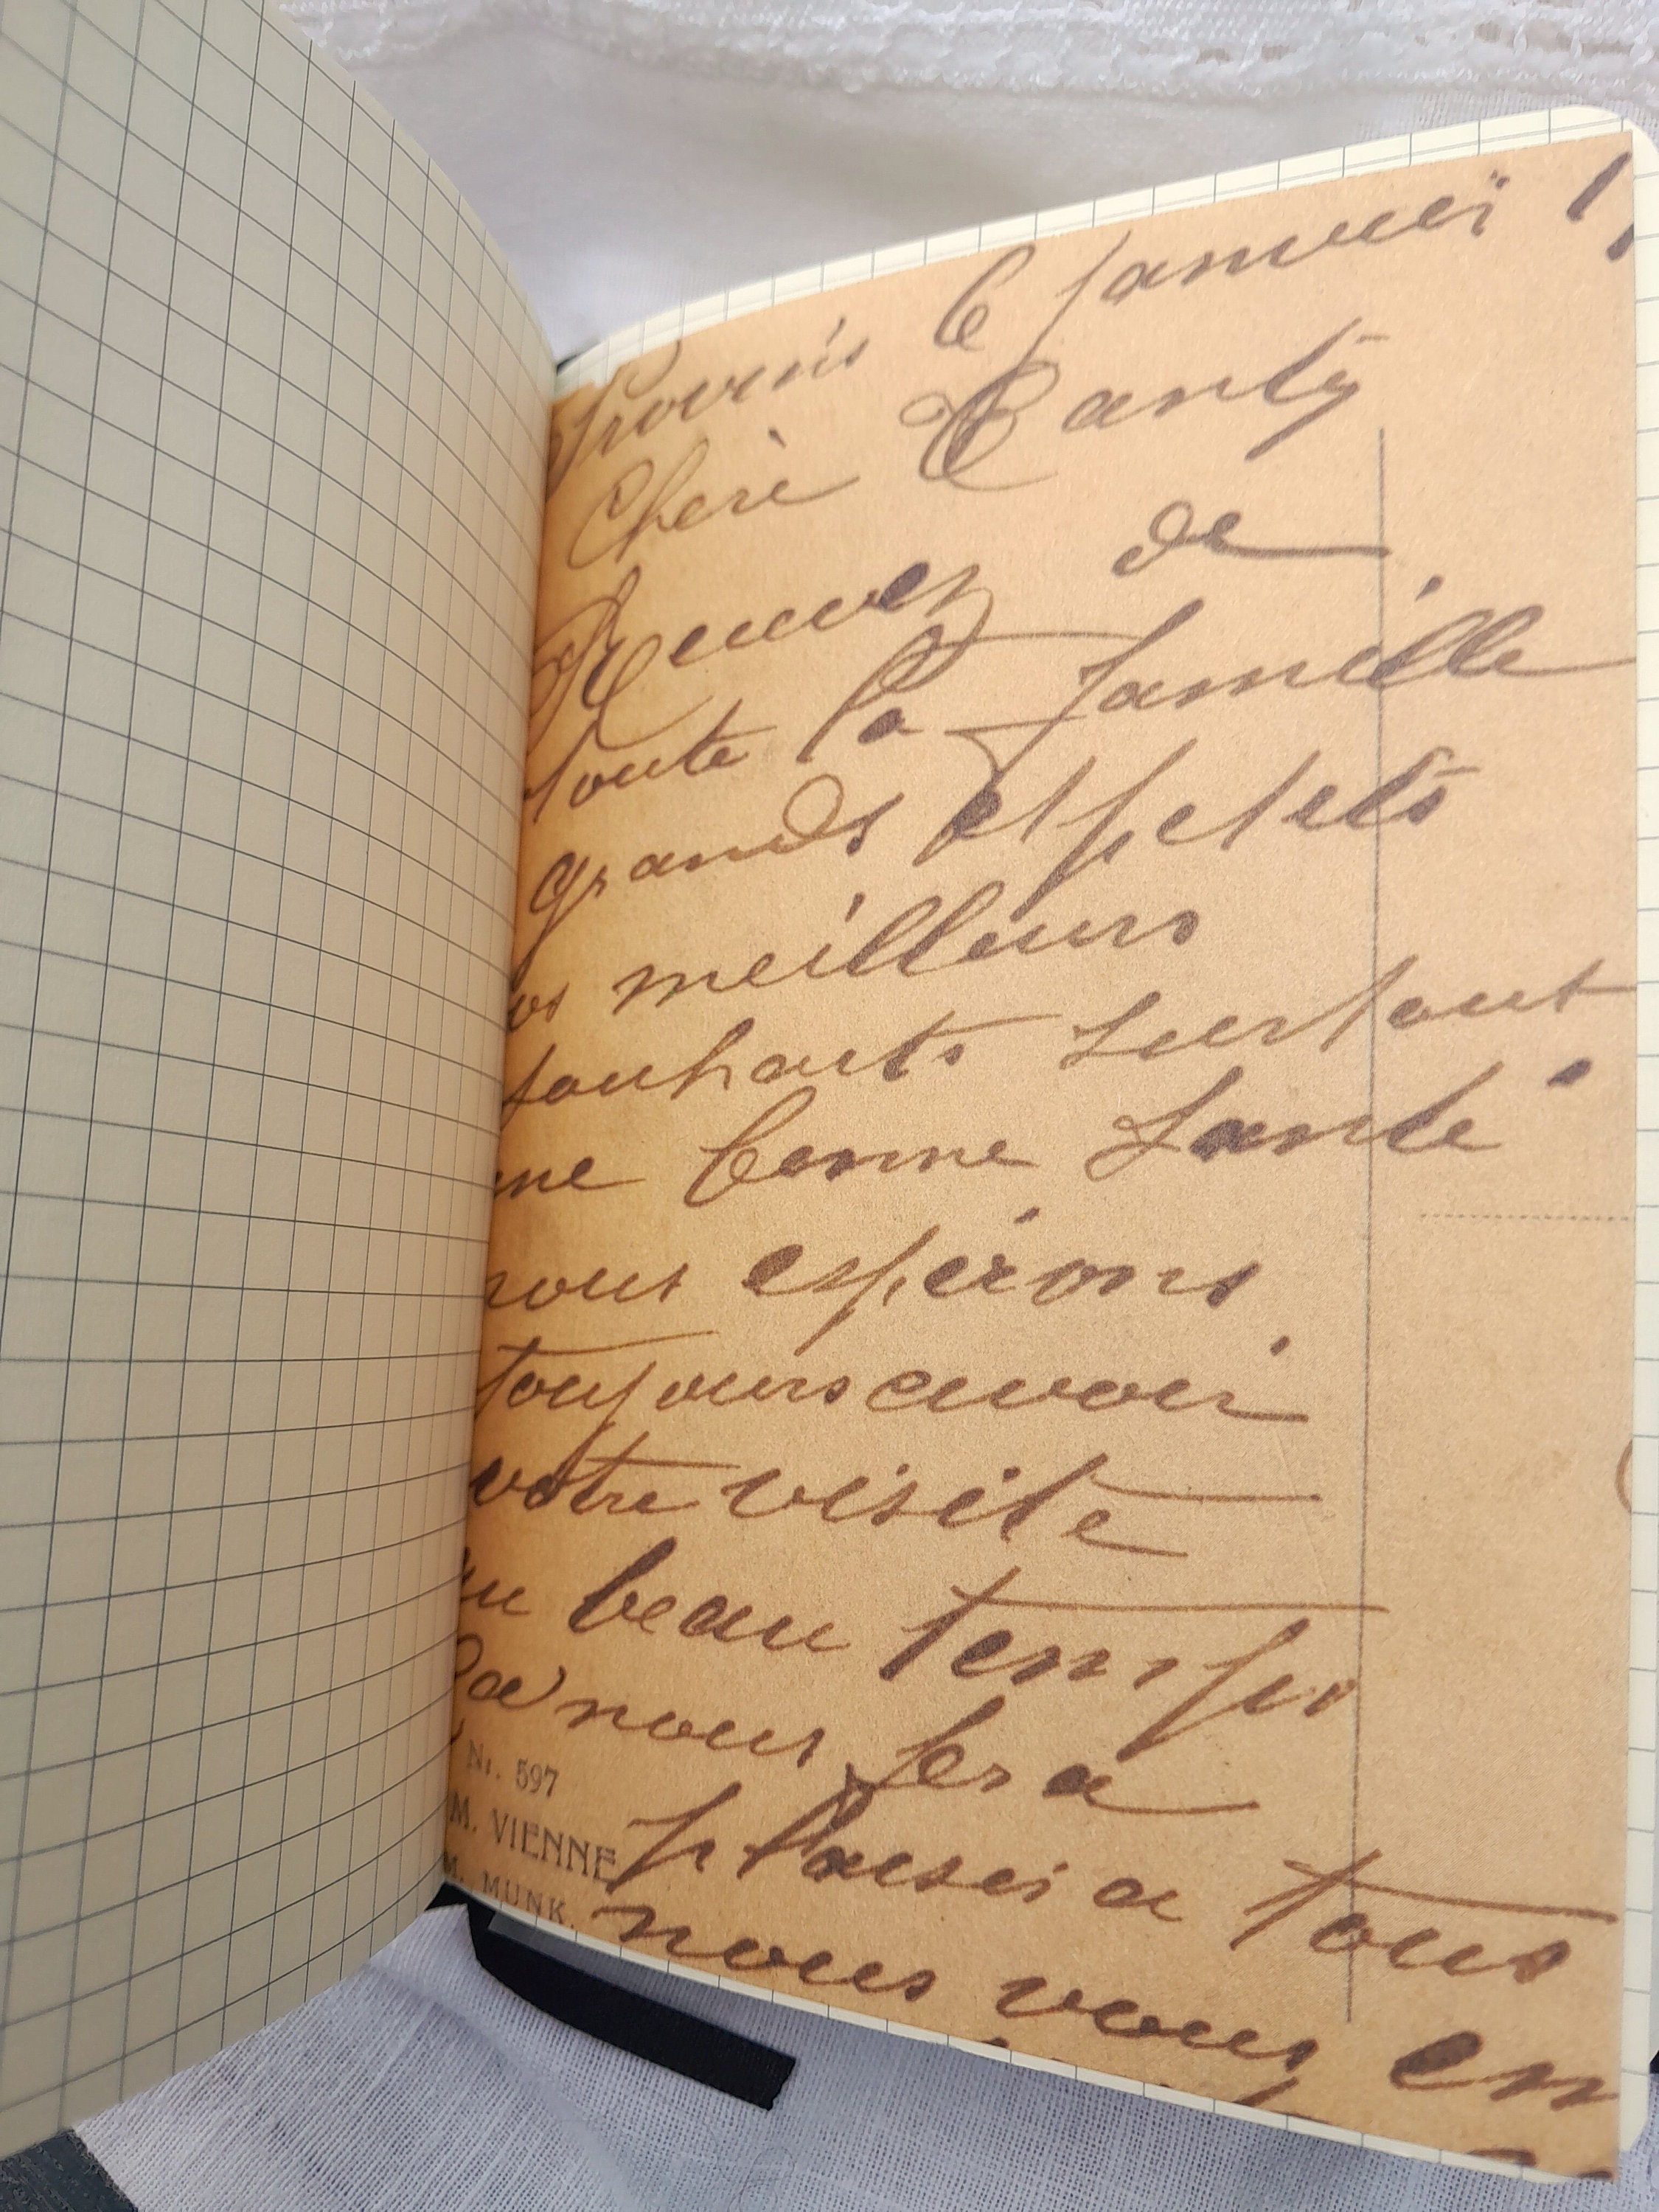 Provins le Janvier 1
Cheri Tanty
Recevez de
toute la famille
grands et petits
os meilleurs
souhaits surtout
ne bonne Santé
nous espérons
toujours avoir
votre visite
au beau temps
Ca nous fera
Nr. 597
M. VIENNE
plaisir a tous
M. MUNK.
nous vous en